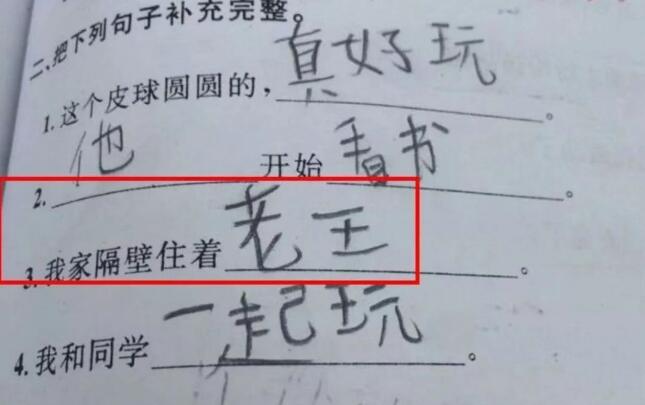 二、把下列句子补充完整。
1.这个皮球圆圆的,真好玩。
2.他开始看书。
3.我家隔壁住着老王。
4.我和同学一起玩。